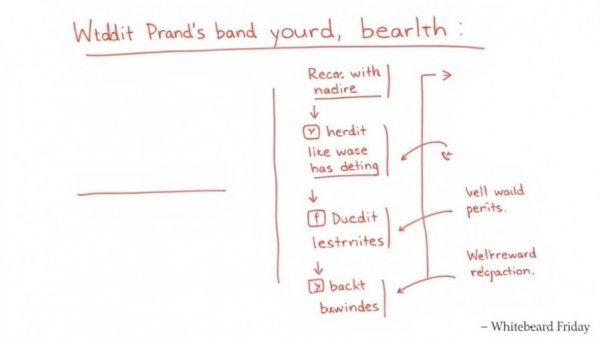 Wtddit Prand's band yourd, bearlth :
Recar with
nadire
herdit
like wase
has deting
Duedit
lestrnites
backt
bawindes
vell wauld
penits.
Weltreward
relcpaction.
– Whitebeard Friday